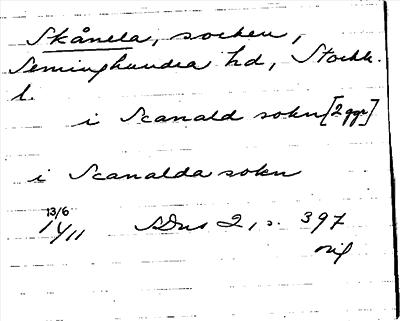 Skånela, socken,
Seminghundra hd, Stockh.
l.
i Scanald sokn [2 ggr]
i Scanalda sokn
13/6
1411 SDns 2, s. 397
orig